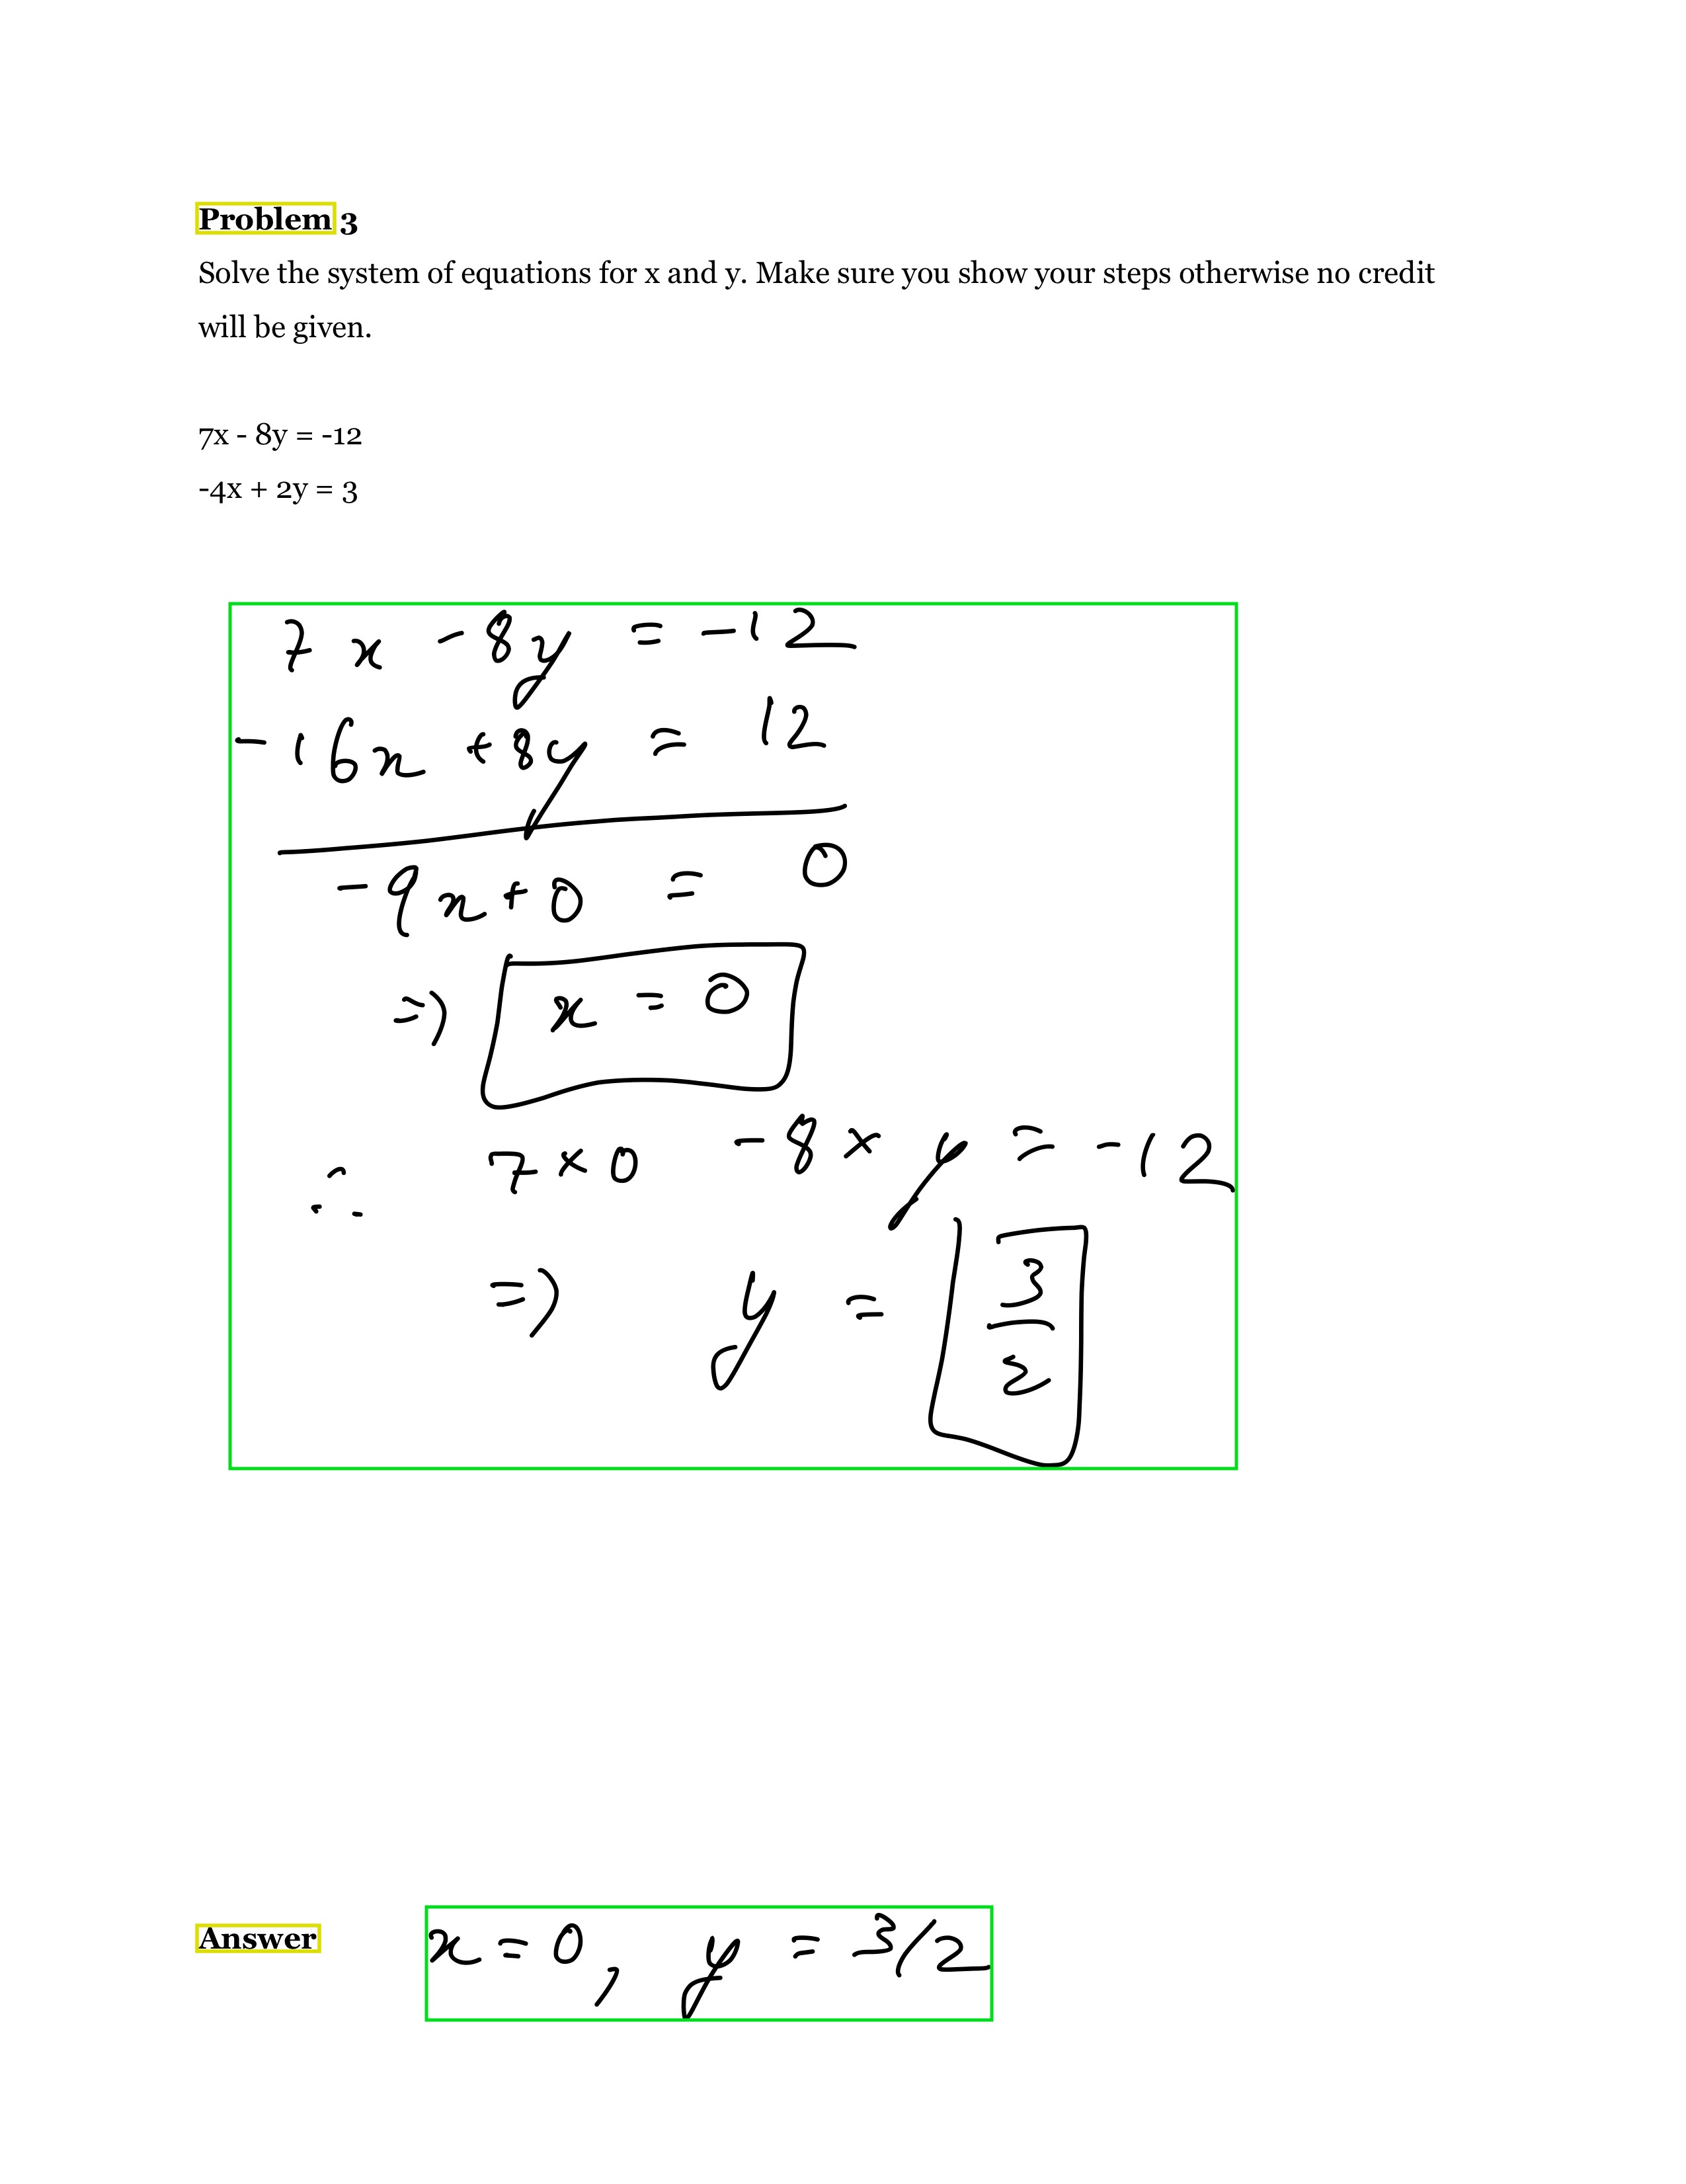 Problem 3
Solve the system of equations for x and y. Make sure you show your steps otherwise no credit
will be given.
7x - 8y = -12
-4x + 2y = 3
7x - 8y = -12
-16x + 8y = 12
-9x + 0 = 0
=> x = 0
∴ 7 × 0 - 8 × y = -12
=> y = 3/2
Answer x = 0, y = 3/2